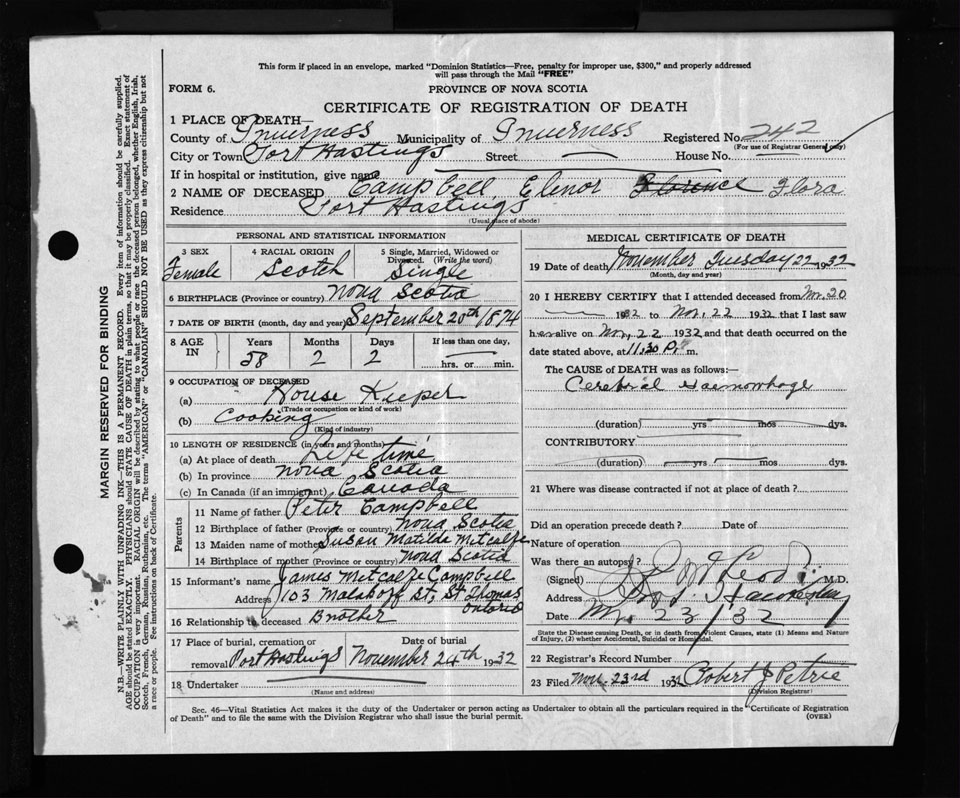 This form if placed in an envelope, marked "Dominion Statistics—Free, penalty for improper use, $300," and properly addressed
will pass through the Mail "FREE"
FORM 6.
PROVINCE OF NOVA SCOTIA
CERTIFICATE OF REGISTRATION OF DEATH
1 PLACE OF DEATH—
County of Inverness Municipality of Inverness Registered No. 242
(For use of Registrar General only)
City or Town Port Hastings Street — House No. —
If in hospital or institution, give name
2 NAME OF DECEASED Campbell, Elenor Florence Flora
Residence Port Hastings
(Usual place of abode)
PERSONAL AND STATISTICAL INFORMATION
3 SEX 4 RACIAL ORIGIN 5 Single, Married, Widowed or
Divorced. (Write the word)
Female Scotch Single
6 BIRTHPLACE (Province or country) Nova Scotia
7 DATE OF BIRTH (month, day and year) September 20th 1874
8 AGE IN Years Months Days If less than one day,
58 2 2 hrs. or min.
9 OCCUPATION OF DECEASED
(a) House Keeper
(Trade or occupation or kind of work)
(b) Cooking
(Kind of industry)
10 LENGTH OF RESIDENCE (in years and months)
(a) At place of death Life time
(b) In province Nova Scotia
(c) In Canada (if an immigrant) Canada
Parents
11 Name of father Peter Campbell
12 Birthplace of father (Province or country) Nova Scotia
13 Maiden name of mother Susan Matilda Metcalfe
14 Birthplace of mother (Province or country) Nova Scotia
15 Informant's name James Metcalfe Campbell
Address 103 Malakoff St, St Thomas
Ontario
16 Relationship to deceased Brother
17 Place of burial, cremation or Date of burial
removal Port Hastings November 24th 1932
18 Undertaker
(Name and address)
MEDICAL CERTIFICATE OF DEATH
19 Date of death November Tuesday 22 1932
(Month, day and year)
20 I HEREBY CERTIFY that I attended deceased from Nov. 20
1932 to Nov. 22 1932 that I last saw
her alive on Nov. 22 1932 and that death occurred on the
date stated above, at 11.30 P. m.
The CAUSE of DEATH was as follows:—
Cerebral Haemorrhage
(duration) yrs mos dys.
CONTRIBUTORY
(duration) yrs mos dys.
21 Where was disease contracted if not at place of death?
Did an operation precede death? Date of
Nature of operation
Was there an autopsy?
(Signed) M.D.
Address
Date Nov. 23/32
State the Disease causing Death, or in death from Violent Causes, state (1) Means and Nature
of Injury, (2) whether Accidental, Suicidal or Homicidal.
22 Registrar's Record Number
23 Filed Nov. 23rd 1932 Robert J Petrie
(Division Registrar)
Sec. 46—Vital Statistics Act makes it the duty of the Undertaker or person acting as Undertaker to obtain all the particulars required in the "Certificate of Registration
of Death" and to file the same with the Division Registrar who shall issue the burial permit. (OVER)
MARGIN RESERVED FOR BINDING
N.B.—WRITE PLAINLY WITH UNFADING INK—THIS IS A PERMANENT RECORD. Every item of information should be carefully supplied.
AGE should be stated EXACTLY. PHYSICIANS should STATE CAUSE OF DEATH in plain terms, so that it may be properly classified. Exact statement of
OCCUPATION is very important. RACIAL ORIGIN will be described by stating to what people or race the deceased person belonged, whether English, Irish,
Scotch, French, German, Russian, Ruthenian, etc. The terms "AMERICAN" or "CANADIAN" SHOULD NOT BE USED as they express citizenship but not
a race or people. See instructions on back of Certificate.